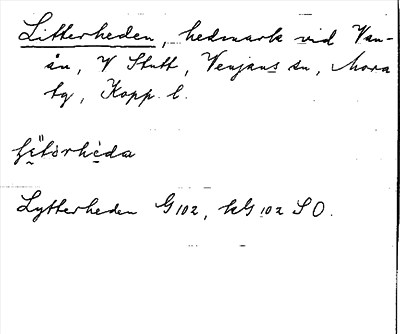 Litterheden, hedmark vid Van-
ån, V Stutt, Venjans sn, Mora
tg, Kopp. l.
Lytterheden G 102, kG 102 SO.